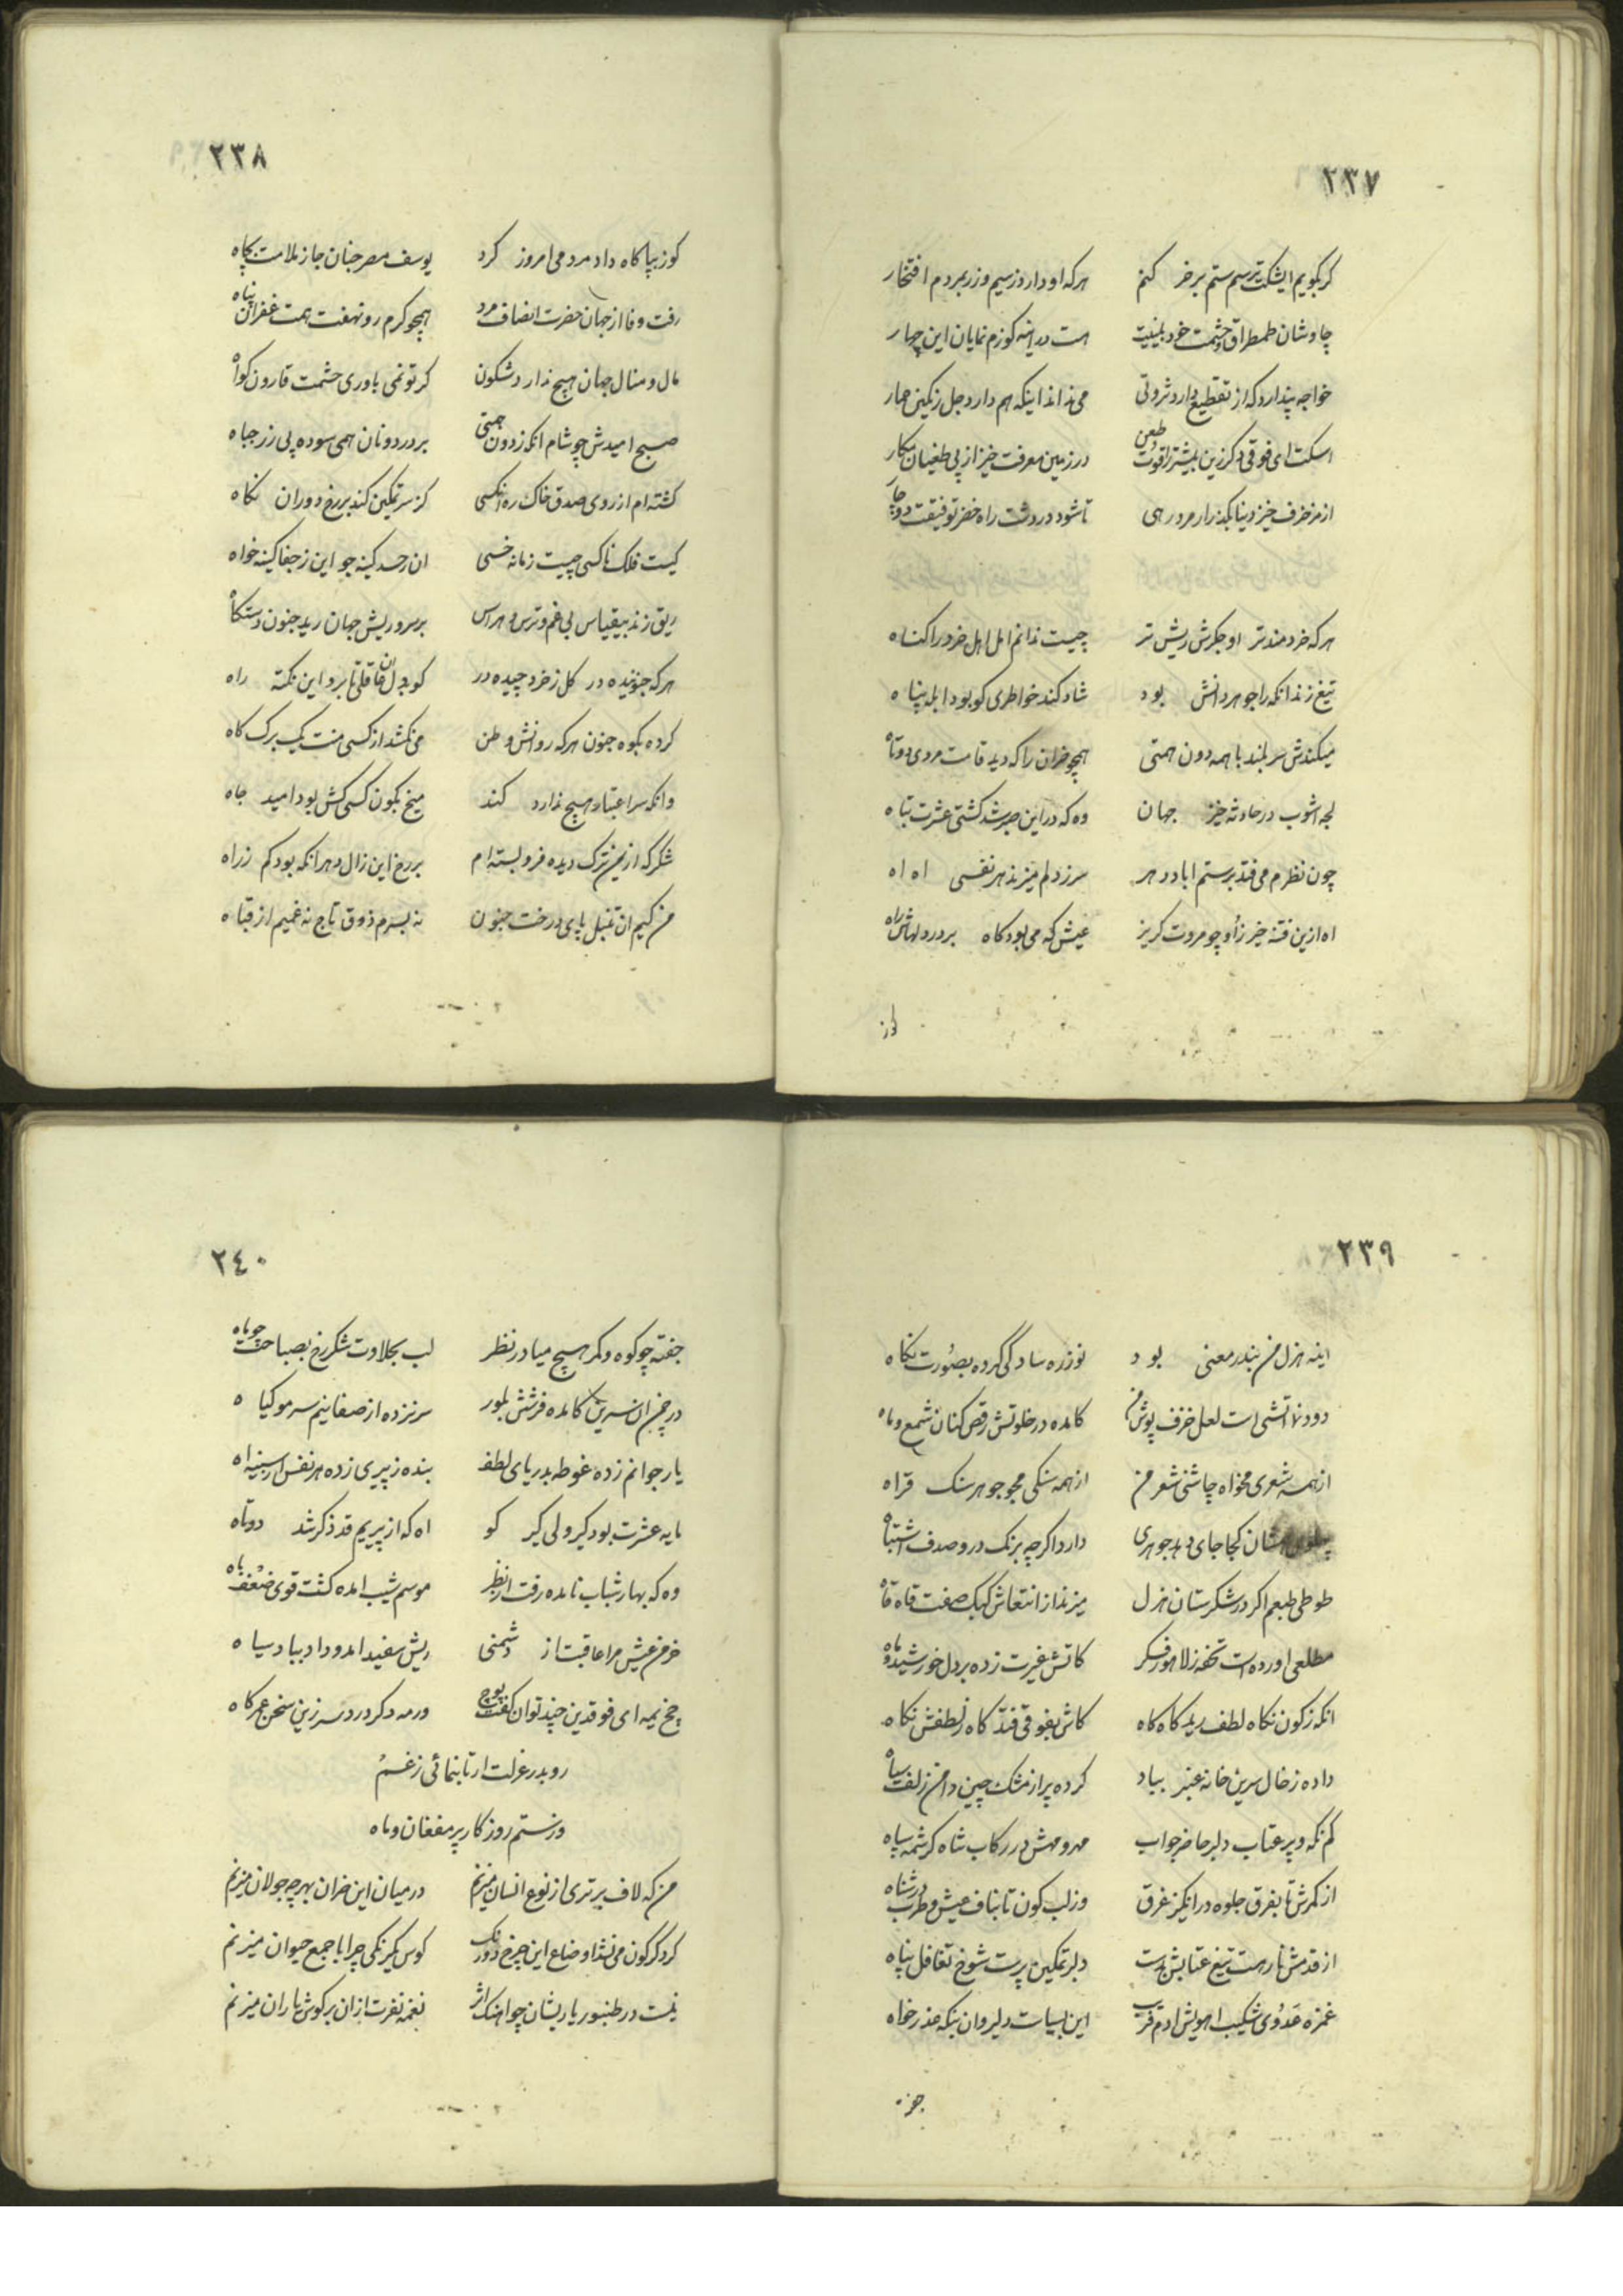 ٢٣٧
کربکویم ایشکت ترسم ستم بر خر کنم هرکه او دارد زسیم و زر بمردم افتخار
چاوشان طمطراق و حشمت خود بلینیت هست در اینه کوزم نمایان این چهار
خواجه پندارد که از تقطیع دارد ثروتی می نداند اینکه هم دارد جل زنکین حمار
اسکت ای فوقی دکر زین بیشتر قوت طعن در زمین معرفت خیز از پی طغیان مکار
از مزخرف خیز دنیا بکذر ار مرد رهی تا شود در دشت راه خضر توفیقت دوچار
هرکه خردمندتر او جکرش ریش تر چیست ندانم اهل اهل خرد را کناه
تیغ زند انکه را جوهر دانش بود شاد کند خواطری کو بود ابله پناه
میکندش سربلند با همه دون همتی همچو خران را که دید قامت مردی دوتاه
لجه اشوب در حادثه خیز جهان وه که در این صبر شد کشتی عشرت تباه
چون نظرم می فتد بر ستم اباد دهر سر زدلم میزند هر نفسی اه اه
اه ازین فتنه خیز زاو چو مروت کریز عیش که می بود کاه بر در دلهاش راه
کوز
٢٣٨
کوز بپا کاه داد مردمی امروز کرد یوسف مصر جنان جا ز ملامت بچاه
رفت وفا از جهان حضرت انصاف مرد همچو کرم رو نهفت همت غفران پناه
مال و منال جهان هیچ ندارد شکون کر تو نمی باوری حشمت قارون کواه
صبح امیدش چو شام انکه زدون همتی بر در دونان همی سوده پی زر جباه
کشته ام از روی صدق خاک ره انکسی کز سر تمکین کند بر رخ دوران نکاه
کیست فلک ناکسی چیست زمانه خسی ان زحسد کینه جو این ز جفا کینه خواه
ریق زند بیقیاس بی غم و ترس و هراس بر سر و ریش جهان رید جنون دستکاه
هرکه جنونیده در کل زخرد چیده در کو بدل ان قلتبا برد این نکته راه
کرده بکوه جنون هرکه روانش وطن می نکشد از کسی منت یک برک کاه
وانکه سر اعتبار هیچ ندارد کند میخ بکون کسی کش بود امید جاه
شکر که از یمن ترک دیده فرو بسته ام بر رخ این زال دهر انکه بود کم زراه
من کیم ان تنبل پای درخت جنون نه بسرم ذوق تاج نه غمیم از قباه
٢٣٩
اینه هزل من بندر معنی بود نوزره سادکی کرده بصورت نکاه
دود نه اتشی است لعل خزف پوش من کامده در خلوتش رقص کنان شمع و ماه
از همه شعری مخواه چاشنی شعر من از همه سنکی مجو جوهر سنک قراه
پهلوی شان کجا جای دهد جوهری دارد اکرچه برنک در و صدف اشتباه
طوطی طبعم اکر در شکرستان هزل میزند از انتعاش کبک صفت قاه قاه
مطلعی اورده است تحفه زلاهور فکر کاتش غیرت زده بر دل خورشید و ماه
انکه زکون نکاه لطف رید کاه کاه کاش بفوقی فتد کاه زلطفش نکاه
داده زخال سرین خانه عنبر بباد کرده پر از مشک چین دامن زلف سیاه
کم نکه و پر عتاب دلبر حاضر جواب مهر و مهش در رکاب شاه کرشمه سپاه
از کمرش تا بفرق جلوه در انکیز غرق وز لب کون تا بناف عیش و طرب در شناه
از قدمش تا رهست تیغ عتابش بدست دلبر تمکین پرست شوخ تغافل پناه
غمزه عدوی شکیب اهویش ادم فریب این بسیاست دلیر وان بنکه عذر خواه
جفته
٢٤٠
جفته چو کوه و کمر هیچ میا در نظر لب بحلاوت شکر رخ بصباحت چو ماه
در چمن ان سرین کامده فرشش بلور سر نزده از صفا نیم سر مو کیاه
یار جوانم زده غوطه بدریای لطف بنده زپیری زده هر نفس از سینه اه
مایه عشرت بود کیر ولی کیر کو اه که از پیریم قد ذکر شد دوتاه
وه که بهار شباب نامده رفت از نظر موسم شیب امده کشت قوی ضعف باه
خرمن عیش مرا عاقبت از دشمنی ریش سفید امد و داد بباد سیاه
چخ نمه ای فوقدین چند توان کفت پوچ ورمه دکر درد سر زین سخن عمر کاه
رو بدر عزلت ار تا بنمائی زغم
وز ستم روزکار پر مفغان و ماه
من که لاف برتری از نوع انسان میزنم در میان این خران بهر چه جولان میزنم
کر دکرکون می نشد اوضاع این چرخ دورنک کوس یکرنکی چرا با جمع حیوان میزنم
نیست در طنبور یاریشان چو اهنک اثر نغمه نفرت ازان بر کوش یاران میزنم